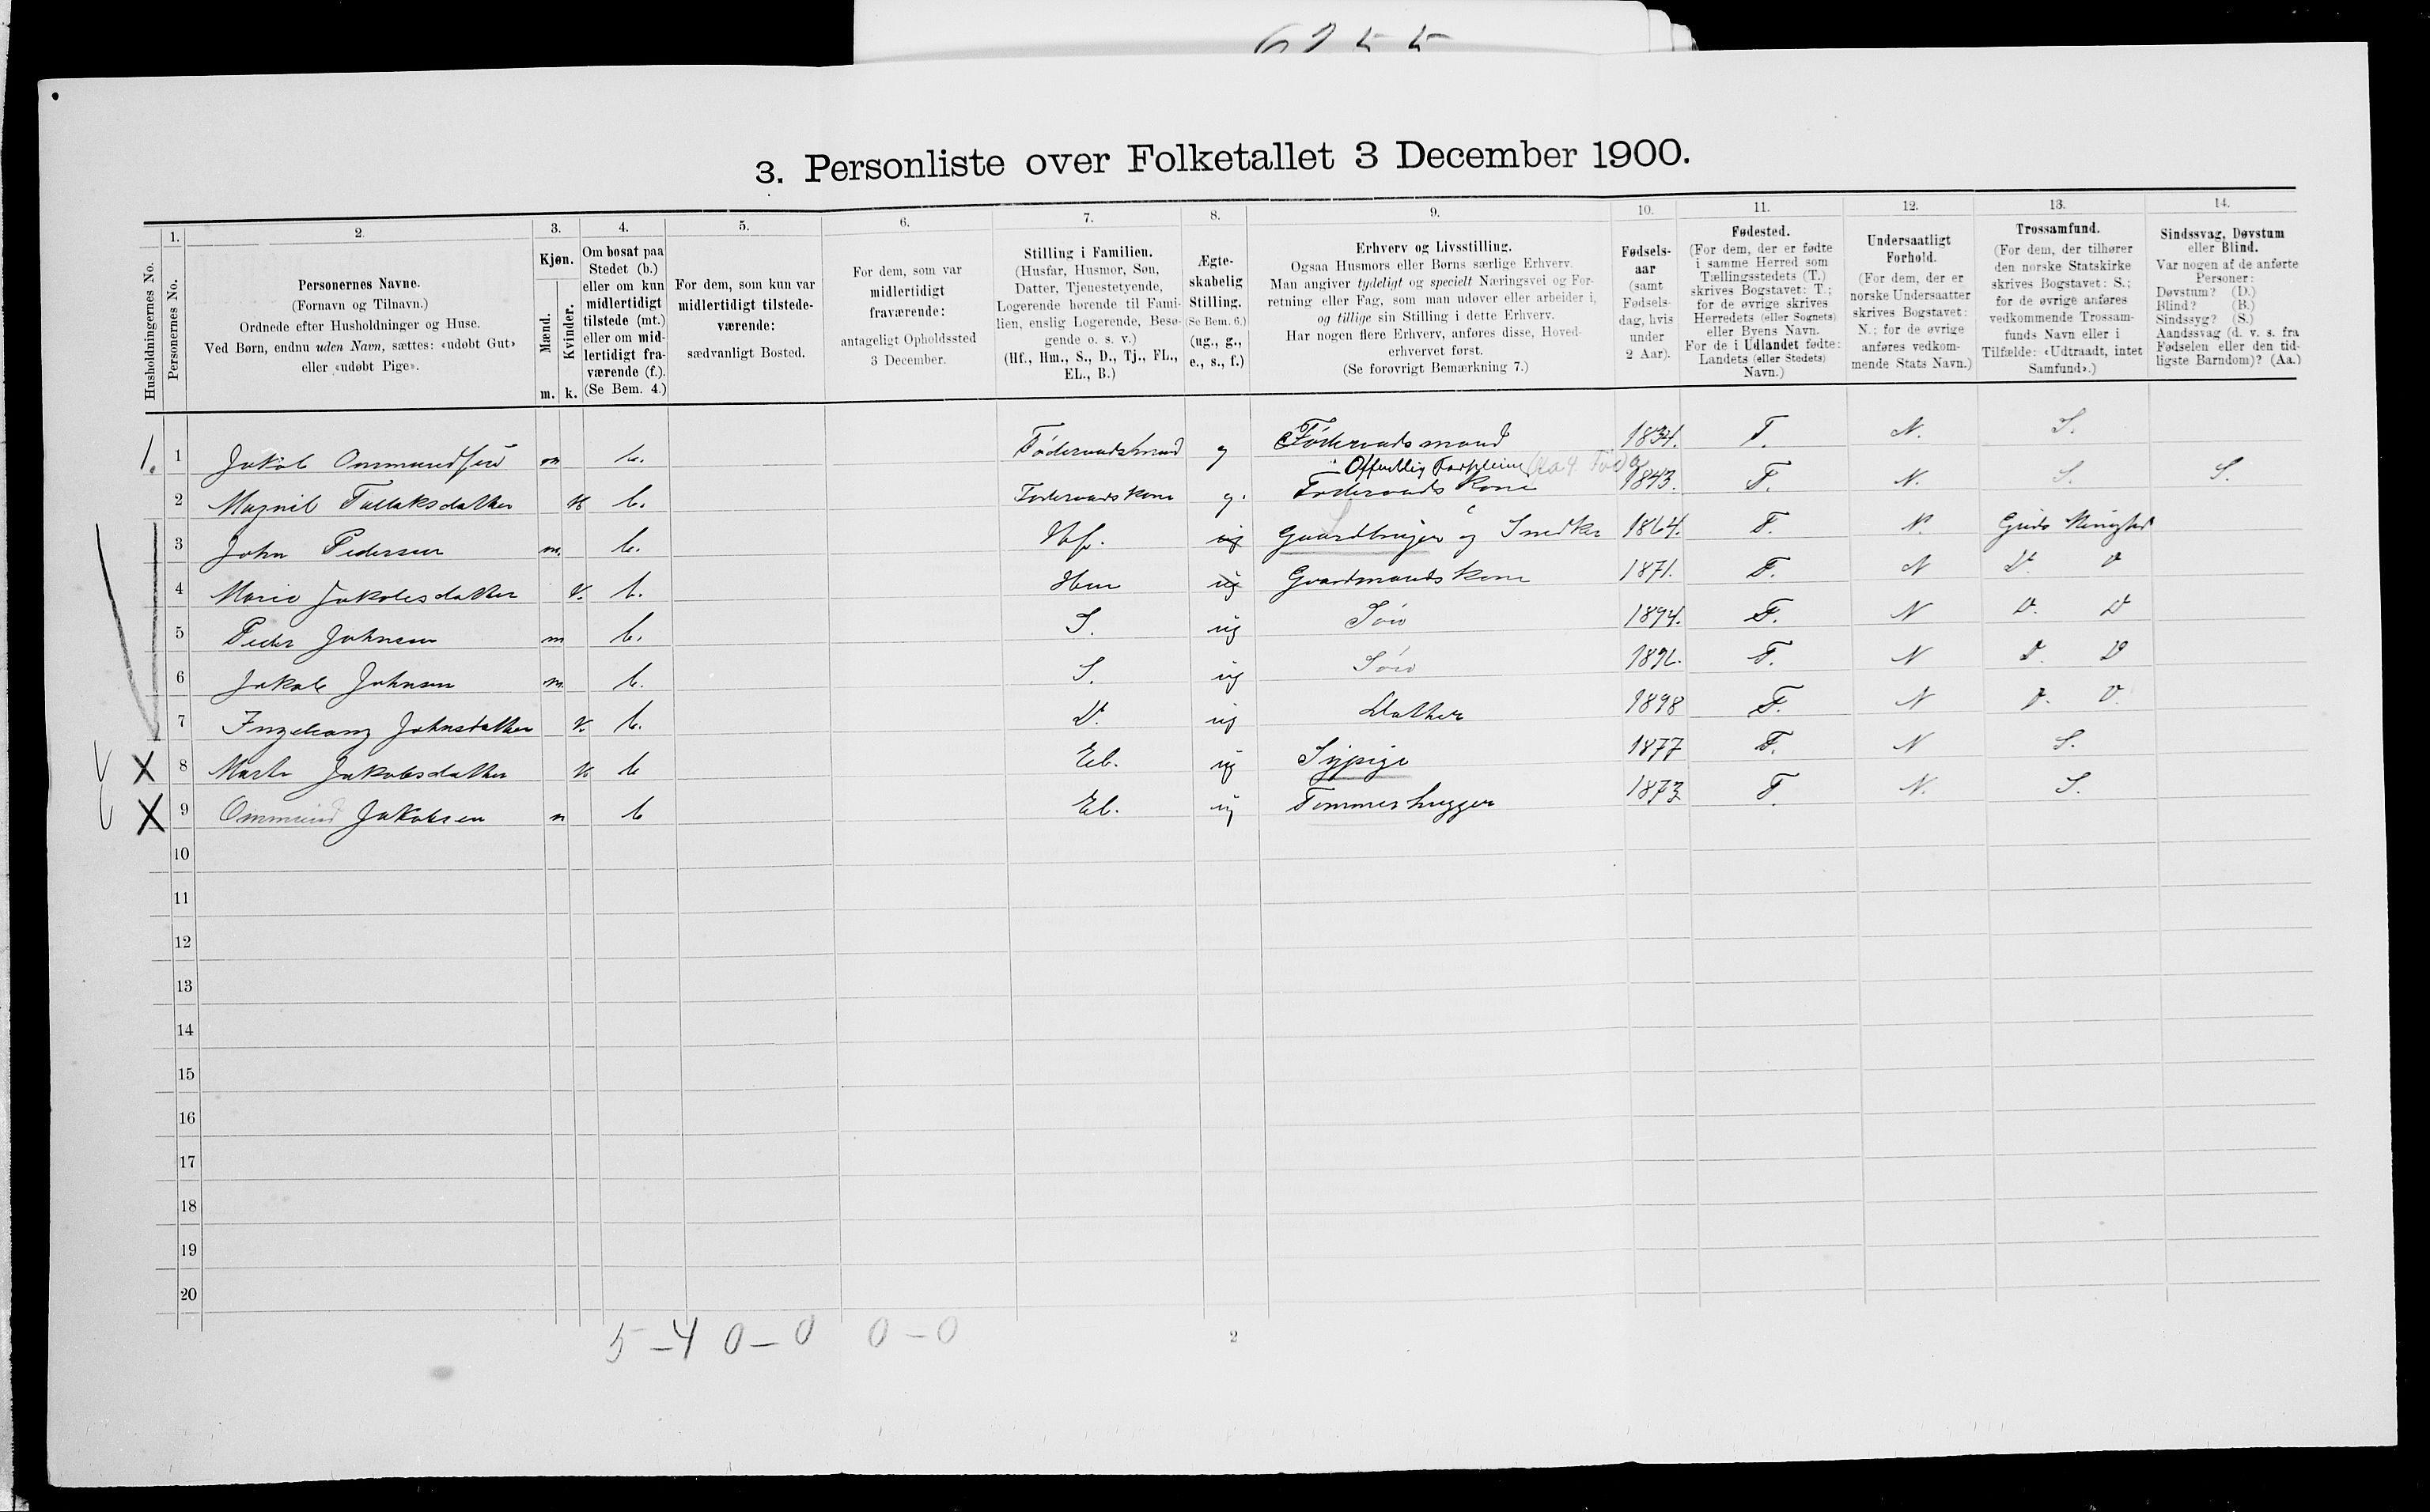 6255
3. Personliste over Folketallet 3 December 1900.
1. 2. 3. 4. 5. 6. 7. 8. 9. 10. 11. 12. 13. 14.
Husholdningernes No.
Personernes No.
Personernes Navne.
(Fornavn og Tilnavn.)
Ordnede efter Husholdninger og Huse.
Ved Børn, endnu uden Navn, sættes: «udøbt Gut»
eller «udøbt Pige».
Kjøn.
Mænd.
Kvinder.
m. k.
Om bosat paa
Stedet (b.)
eller om kun
midlertidigt
tilstede (mt.)
eller om mid-
lertidigt fra-
værende (f.).
(Se Bem. 4.)
For dem, som kun var
midlertidigt tilstede-
værende:
sædvanligt Bosted.
For dem, som var
midlertidigt
fraværende:
antageligt Opholdssted
3 December.
Stilling i Familien.
(Husfar, Husmor, Søn,
Datter, Tjenestetyende,
Logerende hørende til Fami-
lien, enslig Logerende, Besø-
gende o. s. v.)
(Hf., Hm., S., D., Tj., FL.,
EL., B.)
Ægte-
skabelig
Stilling.
(Se Bem. 6.)
(ug., g.,
e., s., f.)
Erhverv og Livsstilling.
Ogsaa Husmors eller Børns særlige Erhverv.
Man angiver tydeligt og specielt Næringsvei og For-
retning eller Fag, som man udøver eller arbeider i,
og tillige sin Stilling i dette Erhverv.
Har nogen flere Erhverv, anføres disse, Hoved-
erhvervet først.
(Se forøvrigt Bemærkning 7.)
Fødsels-
aar
(samt
Fødsels-
dag, hvis
under
2 Aar).
Fødested.
(For dem, der er fødte
i samme Herred som
Tællingsstedets (T.)
skrives Bogstavet: T.;
for de øvrige skrives
Herredets (eller Sognets)
eller Byens Navn.
For de i Udlandet fødte:
Landets (eller Stedets)
Navn.)
Undersaatligt
Forhold.
(For dem, der er
norske Undersaatter
skrives Bogstavet:
N.; for de øvrige
anføres vedkom-
mende Stats Navn.)
Trossamfund.
(For dem, der tilhører
den norske Statskirke
skrives Bogstavet: S.;
for de øvrige anføres
vedkommende Trossam-
funds Navn eller i
Tilfælde: «Udtraadt, intet
Samfund».)
Sindssvag, Døvstum
eller Blind.
Var nogen af de anførte
Personer:
Døvstum? (D.)
Blind? (B.)
Sindssyg? (S.)
Aandssvag (d. v. s. fra
Fødselen eller den tid-
ligste Barndom)? (Aa.)
1. 1 Jakob Ommundsen m b. Føderaadsmand g Føderaadsmand 1834. T. N. S.
Offentlig
2 Magnil Tallaksdatter k b. Føderaadskone g. Føderaads Kone 1843. T. N. S. S.
3 John Pedersen m. b. Hf. Gaardbruger og Snedker 1864. T. N. Guds Menighed
4 Marie Jakobsdatter k. b. Hm Gaardmands kone 1871. T. N D D
5 Peder Johnsen m b. S. ug Søn 1894. T. N D. D
6 Jakob Johnsen m. b. S. ug Søn 1896. T. N D. D
7 Ingeborg Johnsdatter k. b. D. ug Datter 1898 T. N D. D.
X 8 Marte Jakobsdatter k b El. ug Sypige 1877 T. N S.
X 9 Ommund Jakobsen m b El. ug Tømmerhugger 1873 T. N. S.
10
11
12
13
14
15
16
17
18
19
20
5-4 0-0 0-0
2